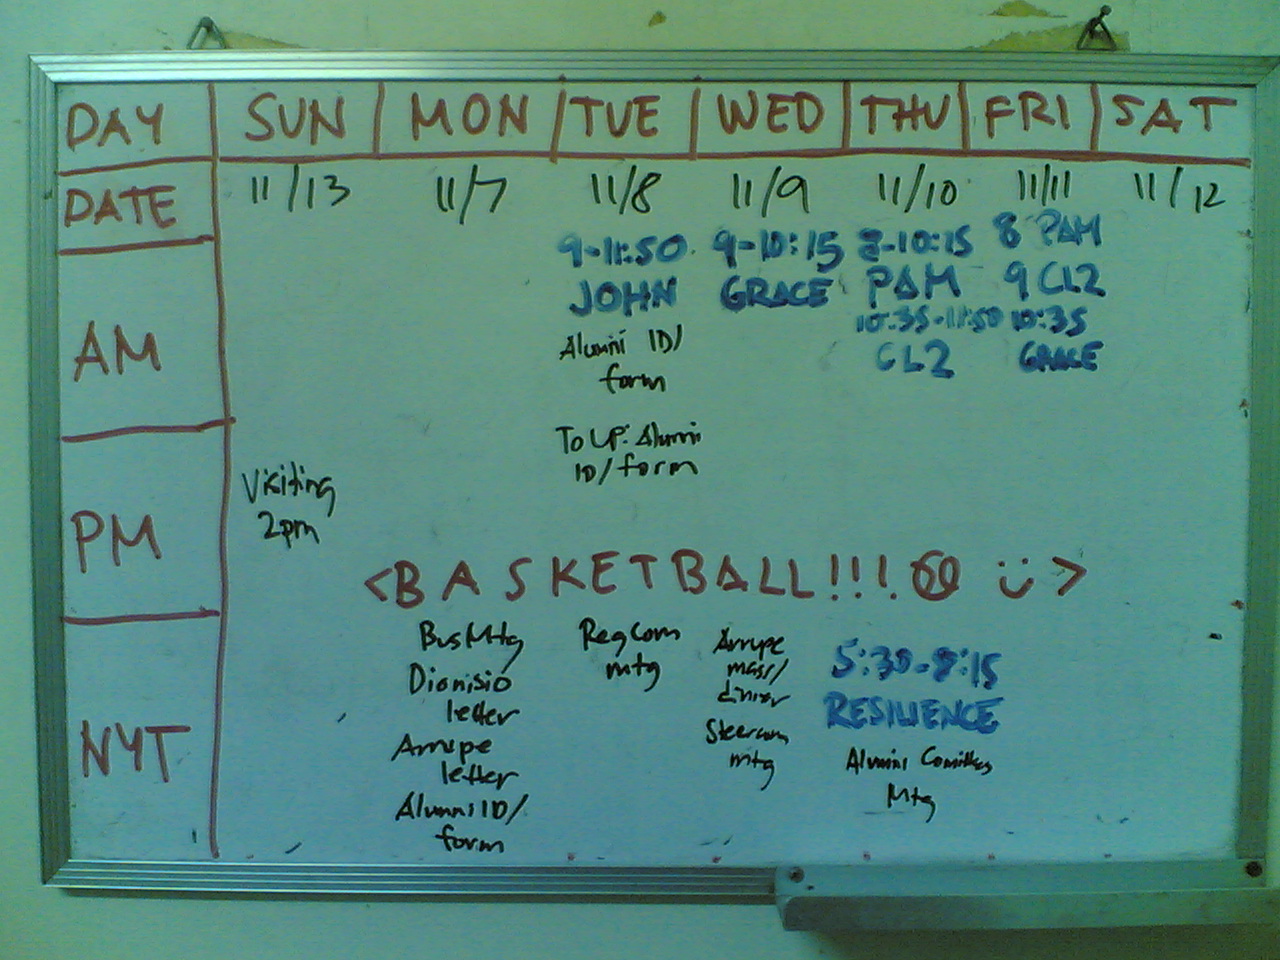 DAY SUN MON TUE WED THU FRI SAT
DATE 11/13 11/7 11/8 11/9 11/10 11/11 11/12
AM
9-11:50
JOHN
Alumni ID/
form
9-10:15
GRACE
8-10:15
PAM
10:35-11:50
CL2
8 PAM
9 CL2
10:35
GRACE
PM
Visiting
2pm
To UP: Alumni
ID/form
<BASKETBALL!!! >
NYT
BusMtg
Dionisio
letter
Arrupe
letter
Alumni ID/
form
RegCom
mtg
Arrupe
mass/
dinner
Steercom
mtg
5:30-8:15
RESILIENCE
Alumni Comittee
Mtg